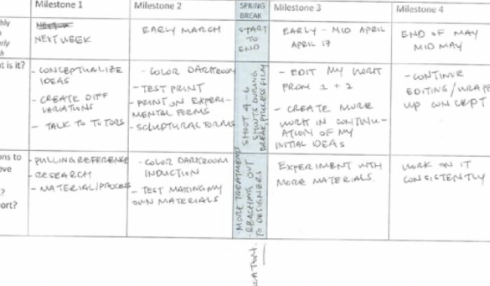 Milestone 1
Milestone 2
SPRING
BREAK
Milestone 3
Milestone 4
NEXT WEEK
EARLY MARCH
START
TO
END
EARLY - MID APRIL
APRIL 17
END OF MAY
MID MAY
t is it?
- CONCEPTUALIZE
IDEAS
- CREATE DIFF
VARIATIONS
- TALK TO TUTORS
- COLOR DARKROOM
- TEST PRINT
- PRINT ON EXPERI-
MENTAL FORMS
- SCULPTURAL FORMS
SHOOT 4-6
SHOOTS DURING
BREAK, PROCESS FILM
- EDIT MY WORK
FROM 1 + 2
- CREATE MORE
WORK IN CONTINU-
ATION OF MY
INITIAL IDEAS
- CONTINUE
EDITING/WRAP
UP CONCEPT
ns to
ve
?
ort?
- PULLING REFERENCE
- RESEARCH
- MATERIAL/PROCESS
- COLOR DARKROOM
INDUCTION
- TEST MAKING MY
OWN MATERIALS
- MORE TREATMENTS
- REACHING OUT
TO DESIGNERS
EXPERIMENT WITH
MORE MATERIALS
WORK ON IT
CONSISTENTLY